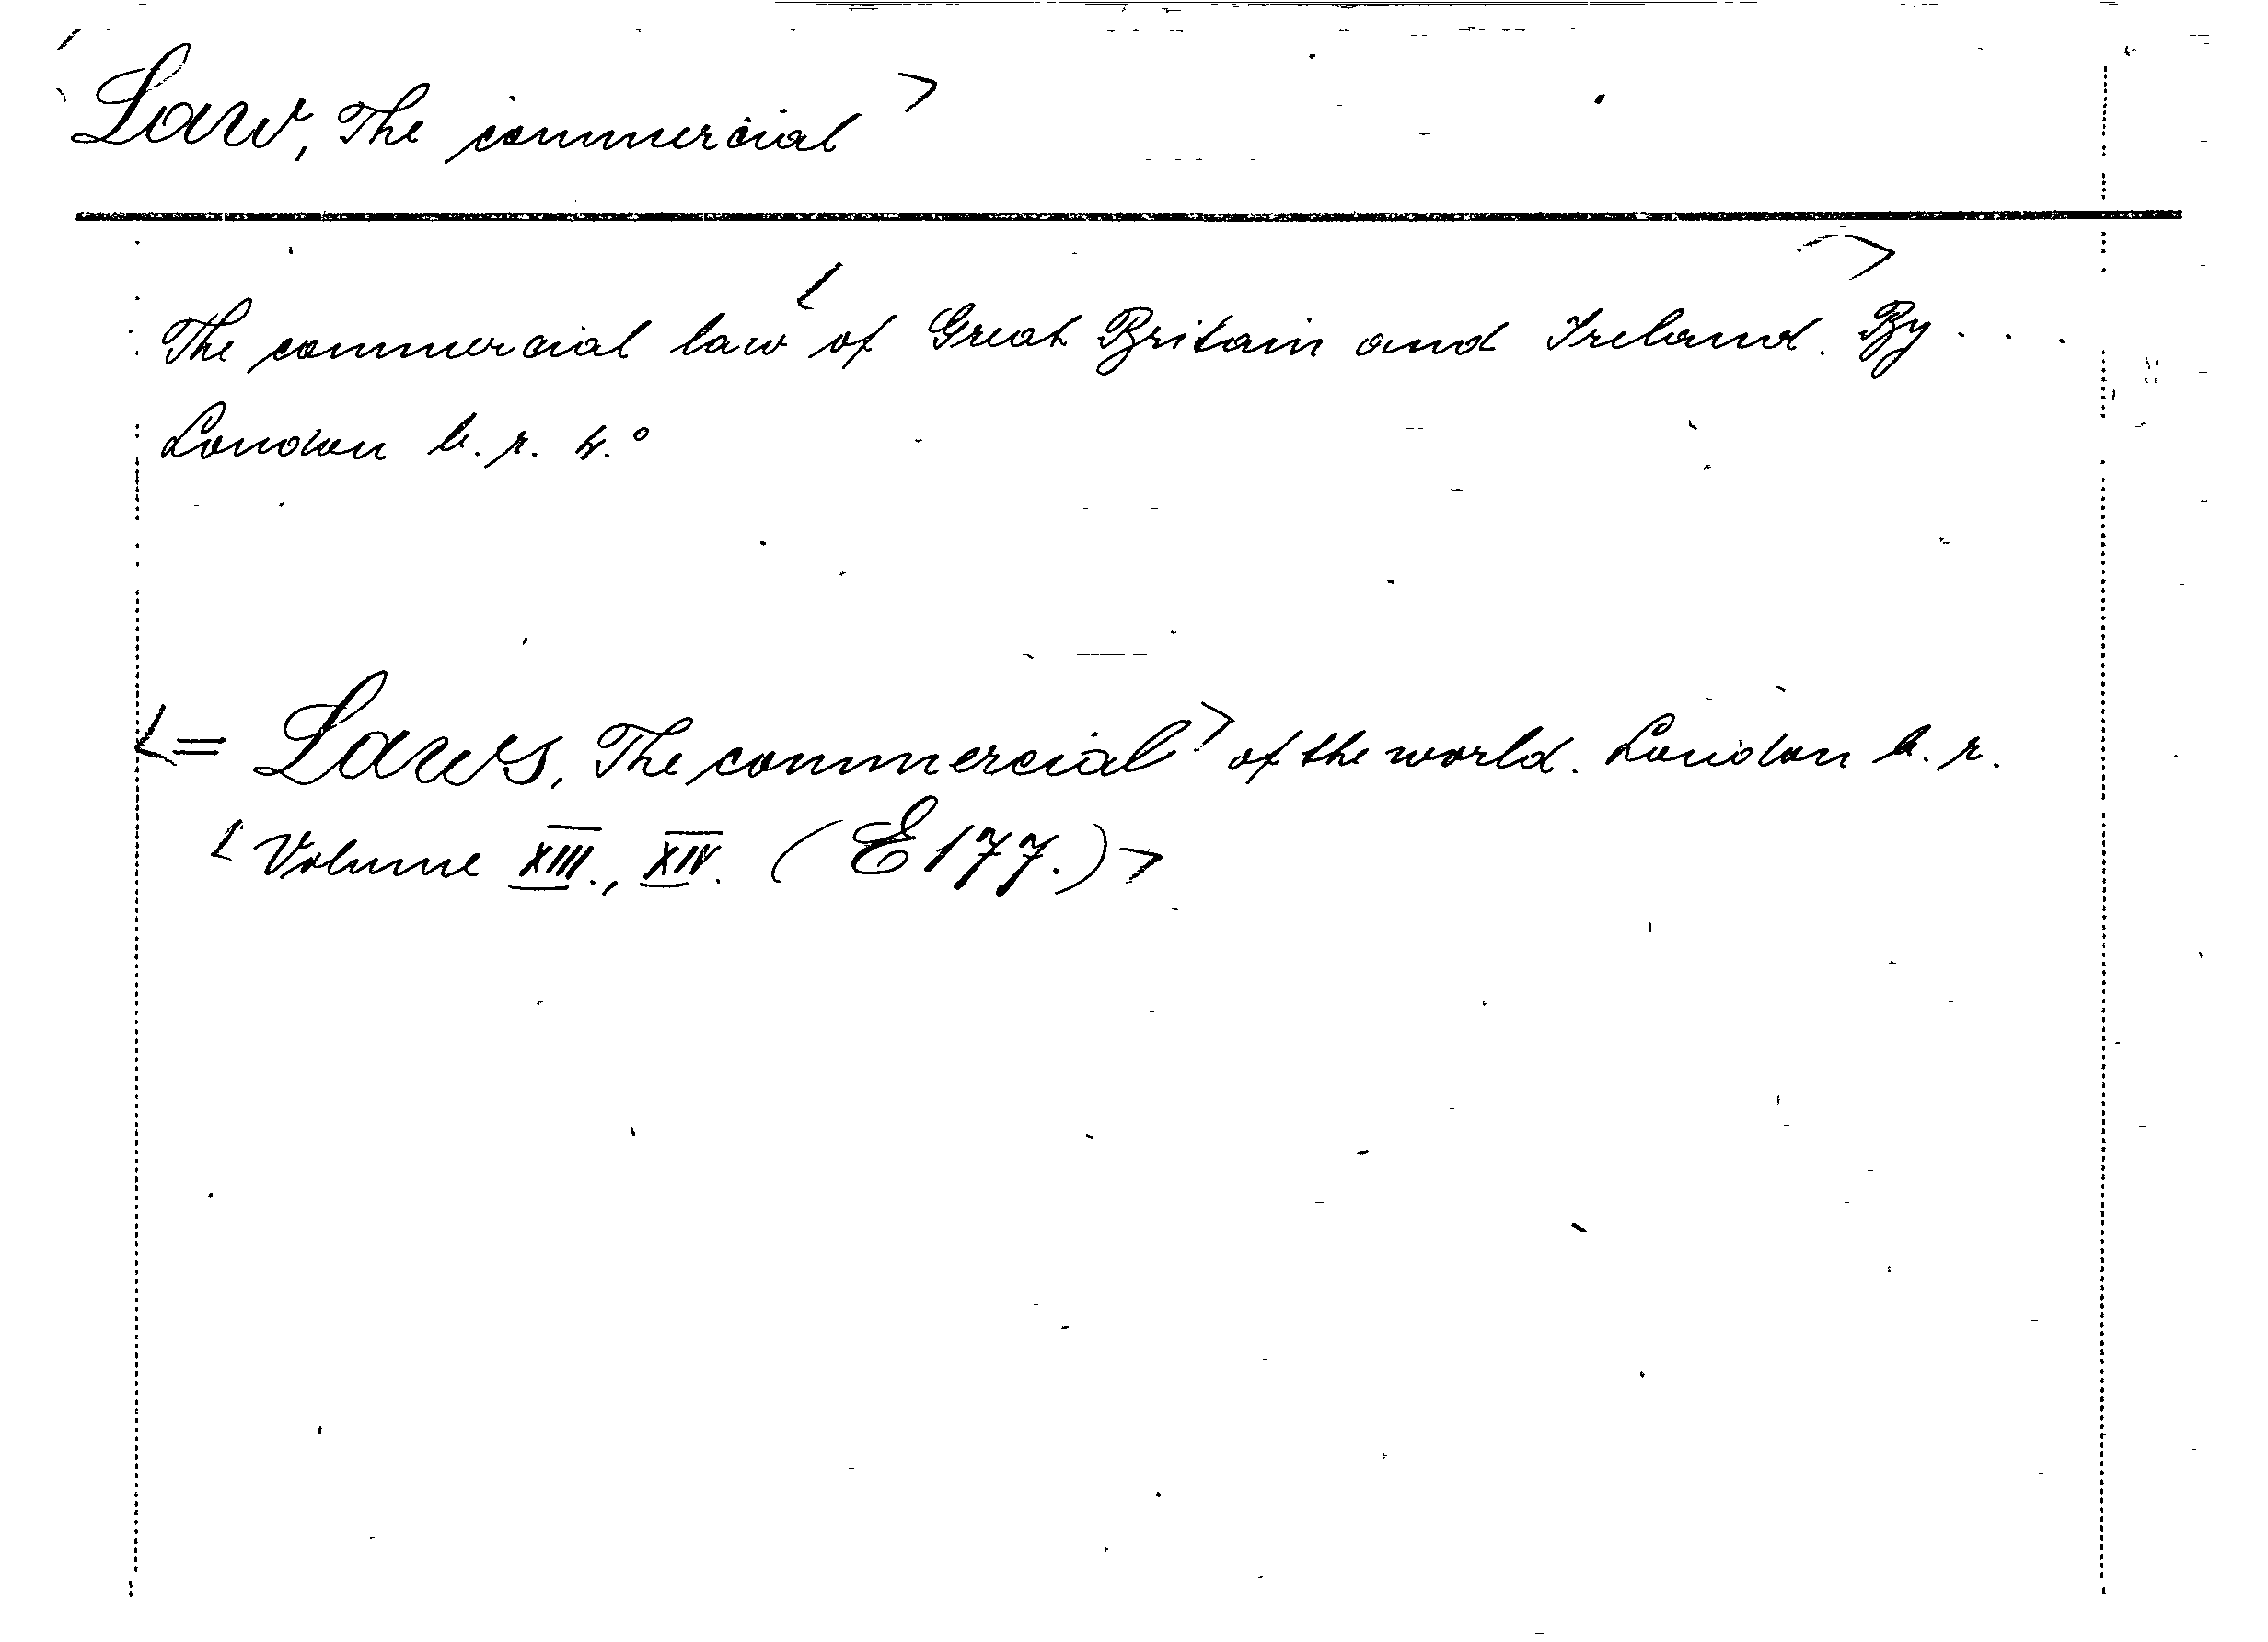 Law, The commercial>
The commercial law <of Great Britain and Ireland.> By . . .
London b. r. 4.°
<= Laws, The commercial> of the world. London b. r.
<Volume XIII., XIV. (E 177.)>